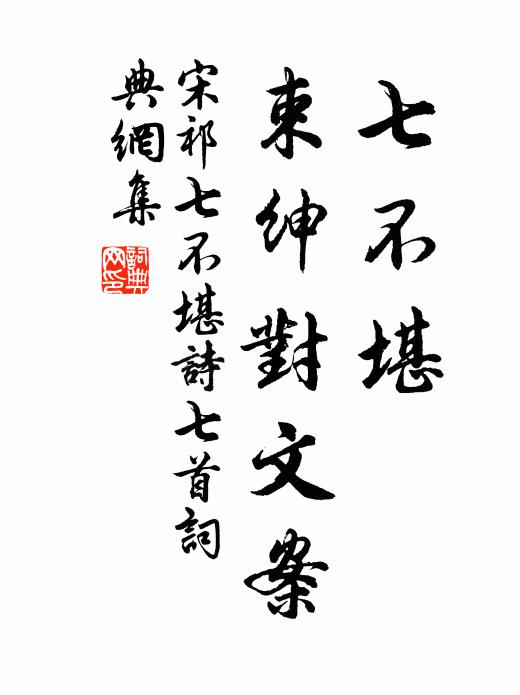 七不堪
束紳對文案
宋祁七不堪詩七首詞
典網集
詞典網印